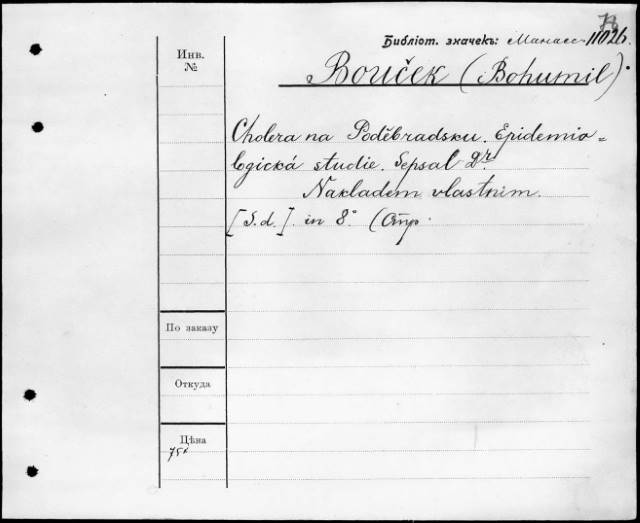 78
Библіот. значекъ: Манасс. 11026.
Инв.
№
Bouček (Bohumil).
Cholera na Poděbradsku. Epidemio=
logická studie. Sepsal Dr.
Nakladem vlastním.
[S. d.]. in 8°. (Отр.
По заказу
Откуда
Цѣна
75к